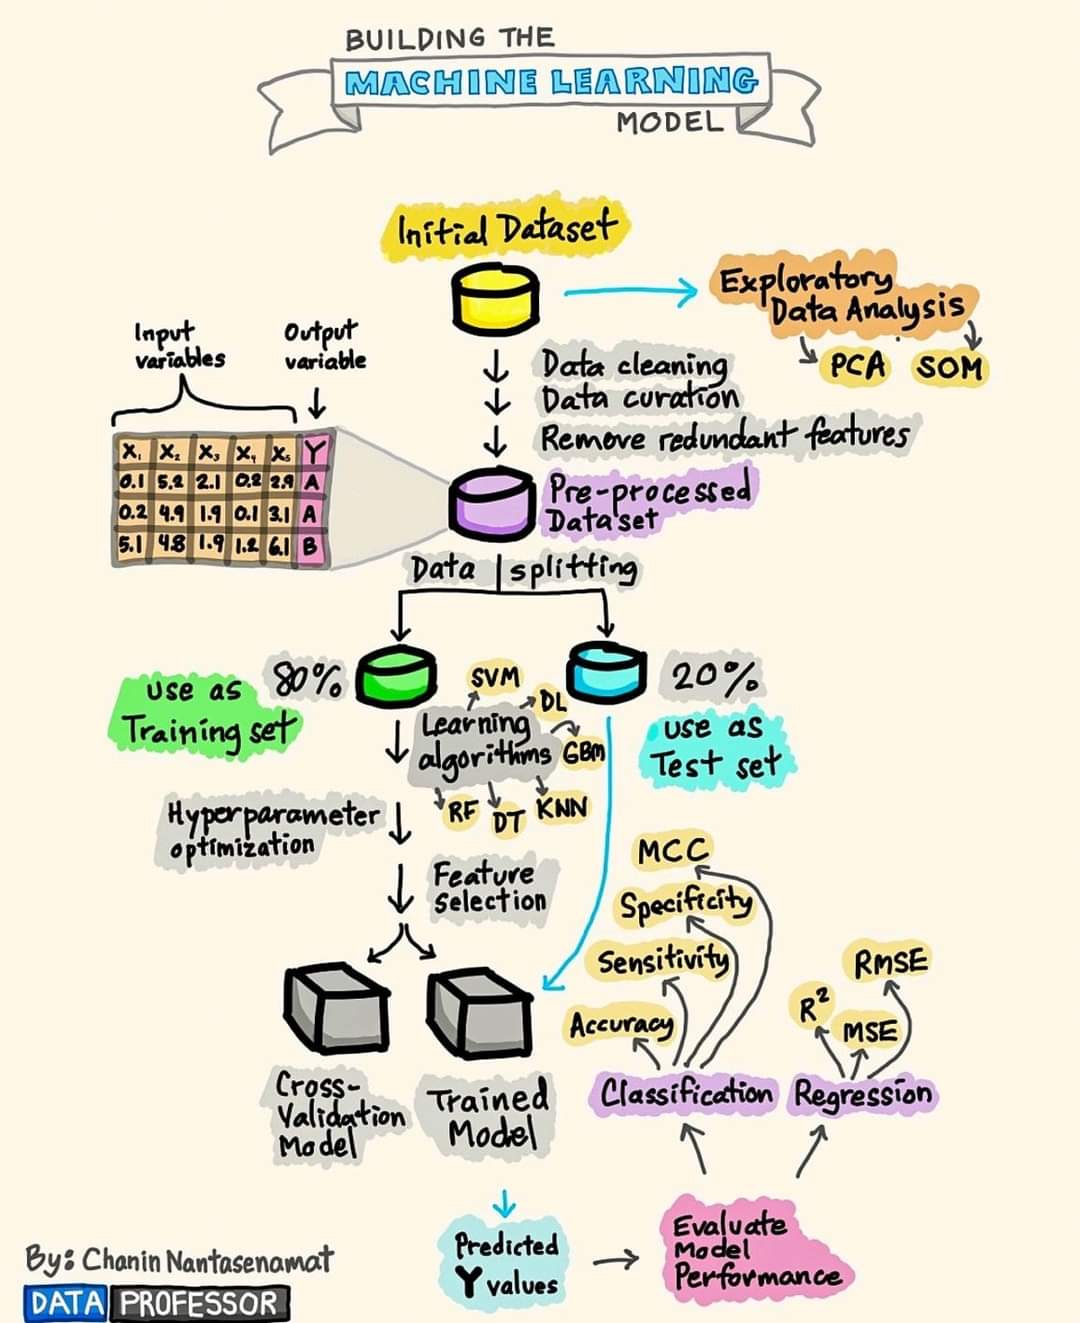 BUILDING THE
MACHINE LEARNING
MODEL
Initial Dataset
Exploratory
Data Analysis
PCA SOM
Input
variables
Output
variable
Data cleaning
Data curation
Remove redundant features
X₁ X₂ X₃ X₄ X₅ Y
0.1 5.2 2.1 0.2 2.9 A
0.2 4.9 1.9 0.1 3.1 A
5.1 4.8 1.9 1.2 6.1 B
Pre-processed
Dataset
Data splitting
80%
use as
Training set
20%
use as
Test set
Learning
algorithms
SVM
DL
GBM
KNN
DT
RF
Hyperparameter
optimization
Feature
Selection
Cross-
Validation
Model
Trained
Model
MCC
Specificity
Sensitivity
Accuracy
RMSE
R²
MSE
Classification
Regression
Predicted
Y values
Evaluate
Model
Performance
By: Chanin Nantasenamat
DATA PROFESSOR